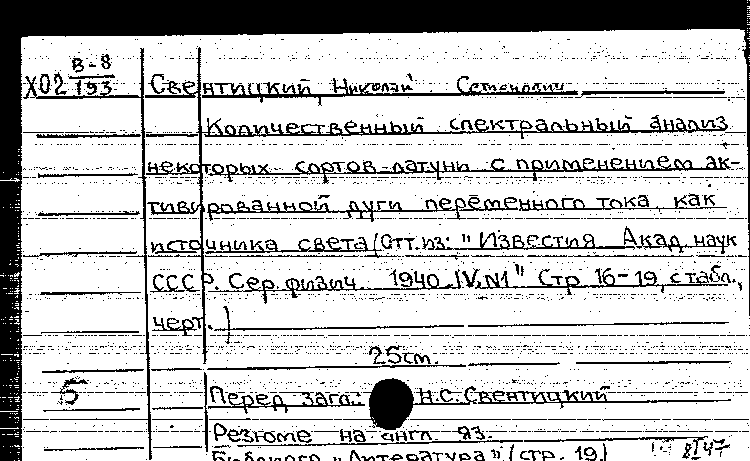 В-8
Х02 193 Свентицкий, Николай Семенович
Количественный спектральный анализ
некоторых сортов латуни с применением ак-
тивированной дуги переменного тока как
источника света (Отт.из: "Известия Акад. наук
СССР. Сер. физич. 1940. IV, №1" Стр. 16-19, с табл.,
черт.)
25см.
Б Перед загл.: Н.С. Свентицкий
Резюме на англ. яз.
Библиогр. "Литература" (стр. 19)